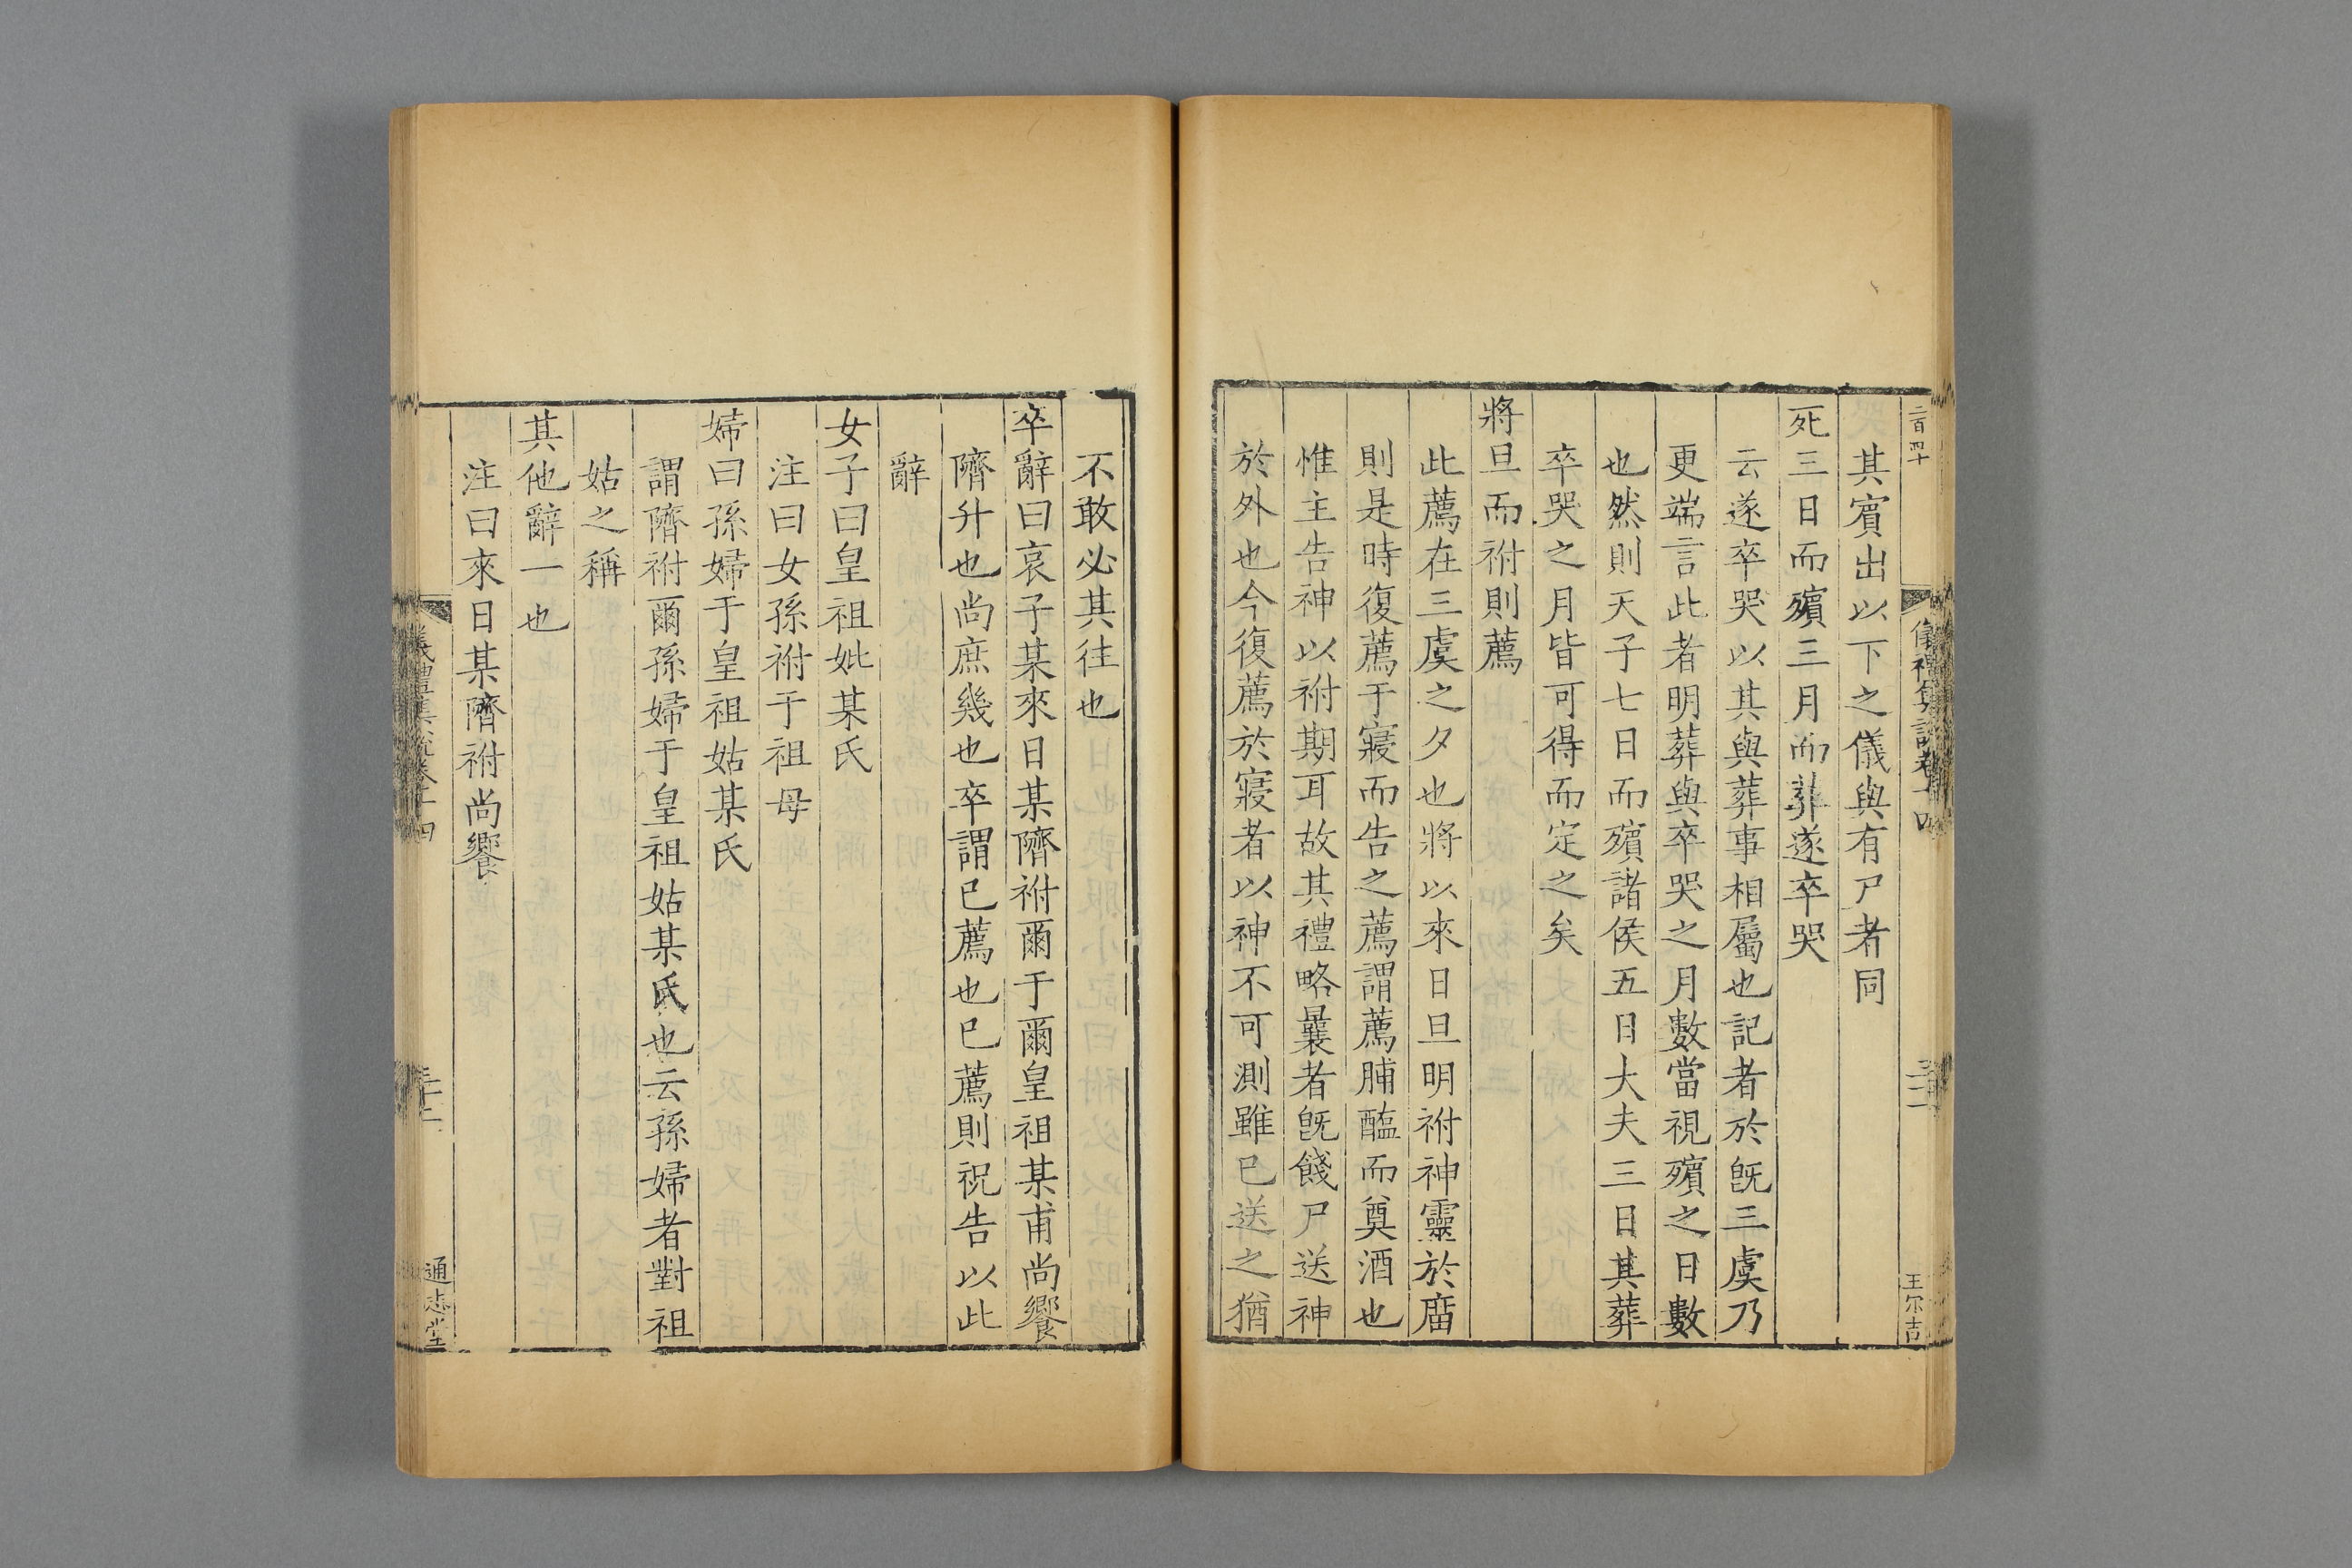 二百四十
儀禮集說卷十四
王尔吉
其賓出以下之儀與有尸者同
死三日而殯三月而葬遂卒哭
云遂卒哭以其與葬事相屬也記者於旣三虞乃
更端言此者明葬與卒哭之月數當視殯之日數
也然則天子七日而殯諸侯五日大夫三日其葬
卒哭之月皆可得而定之矣
將旦而祔則薦
此薦在三虞之夕也將以來日旦明祔神靈於廟
則是時復薦于寢而告之薦謂薦脯醢而奠酒也
惟主告神以祔期耳故其禮略曩者旣餞尸送神
於外也今復薦於寢者以神不可測雖已送之猶
不敢必其往也
卒辭曰哀子某來日某隮祔爾于爾皇祖某甫尚饗
隮升也尚庶幾也卒謂已薦也已薦則祝告以此
辭
女子曰皇祖妣某氏
注曰女孫祔于祖母
婦曰孫婦于皇祖姑某氏
謂隮祔爾孫婦于皇祖姑某氏也云孫婦者對祖
姑之稱
其他辭一也
注曰來日某隮祔尚饗
儀禮集說卷十四
通志堂